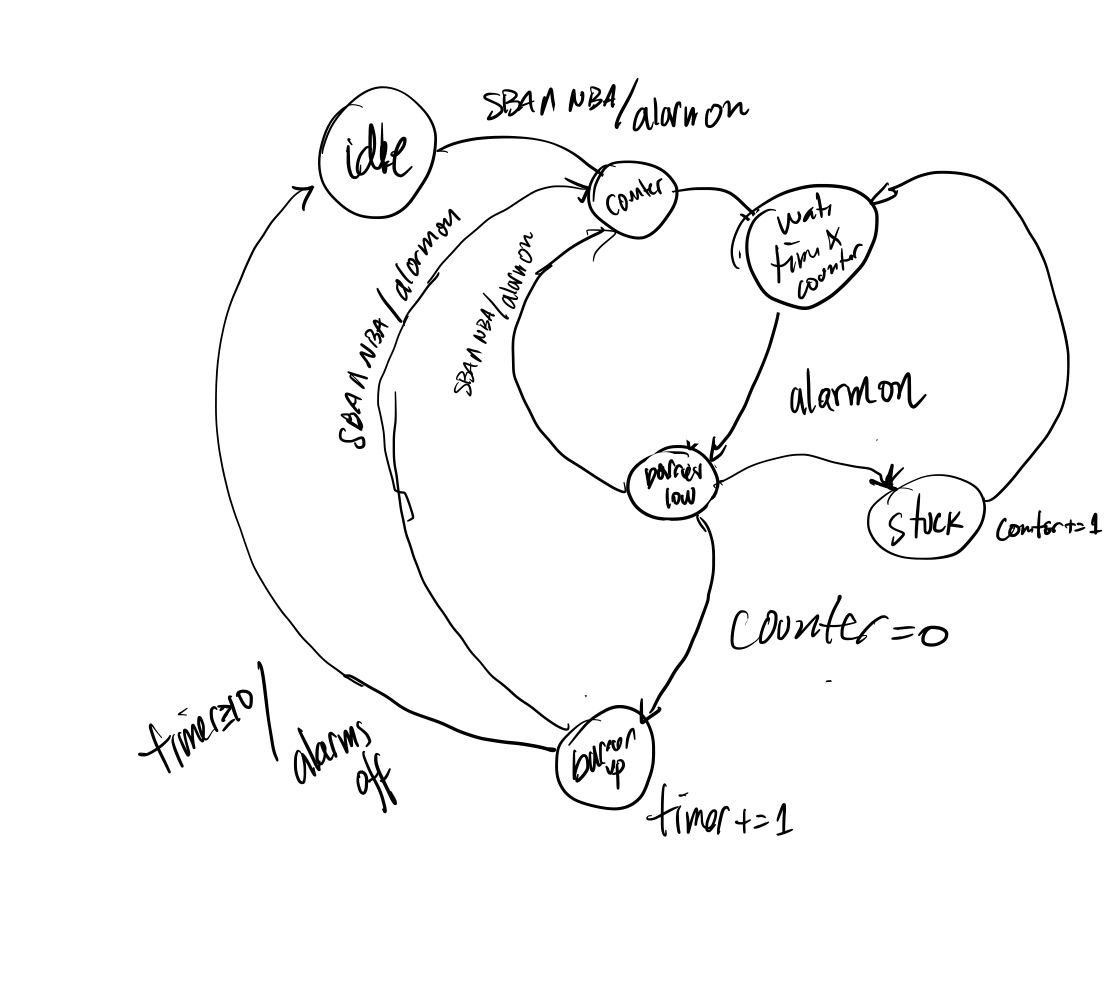 SBA ∧ NBA/alarm on
idle
counter
wait
time x
counter
SBA ∧ NBA/alarmon
SBA ∧ NBA/alarmon
alarmon
barrier
low
stuck
counter+=1
counter=0
timer≥10/
alarms
off
barrier
up
timer+=1